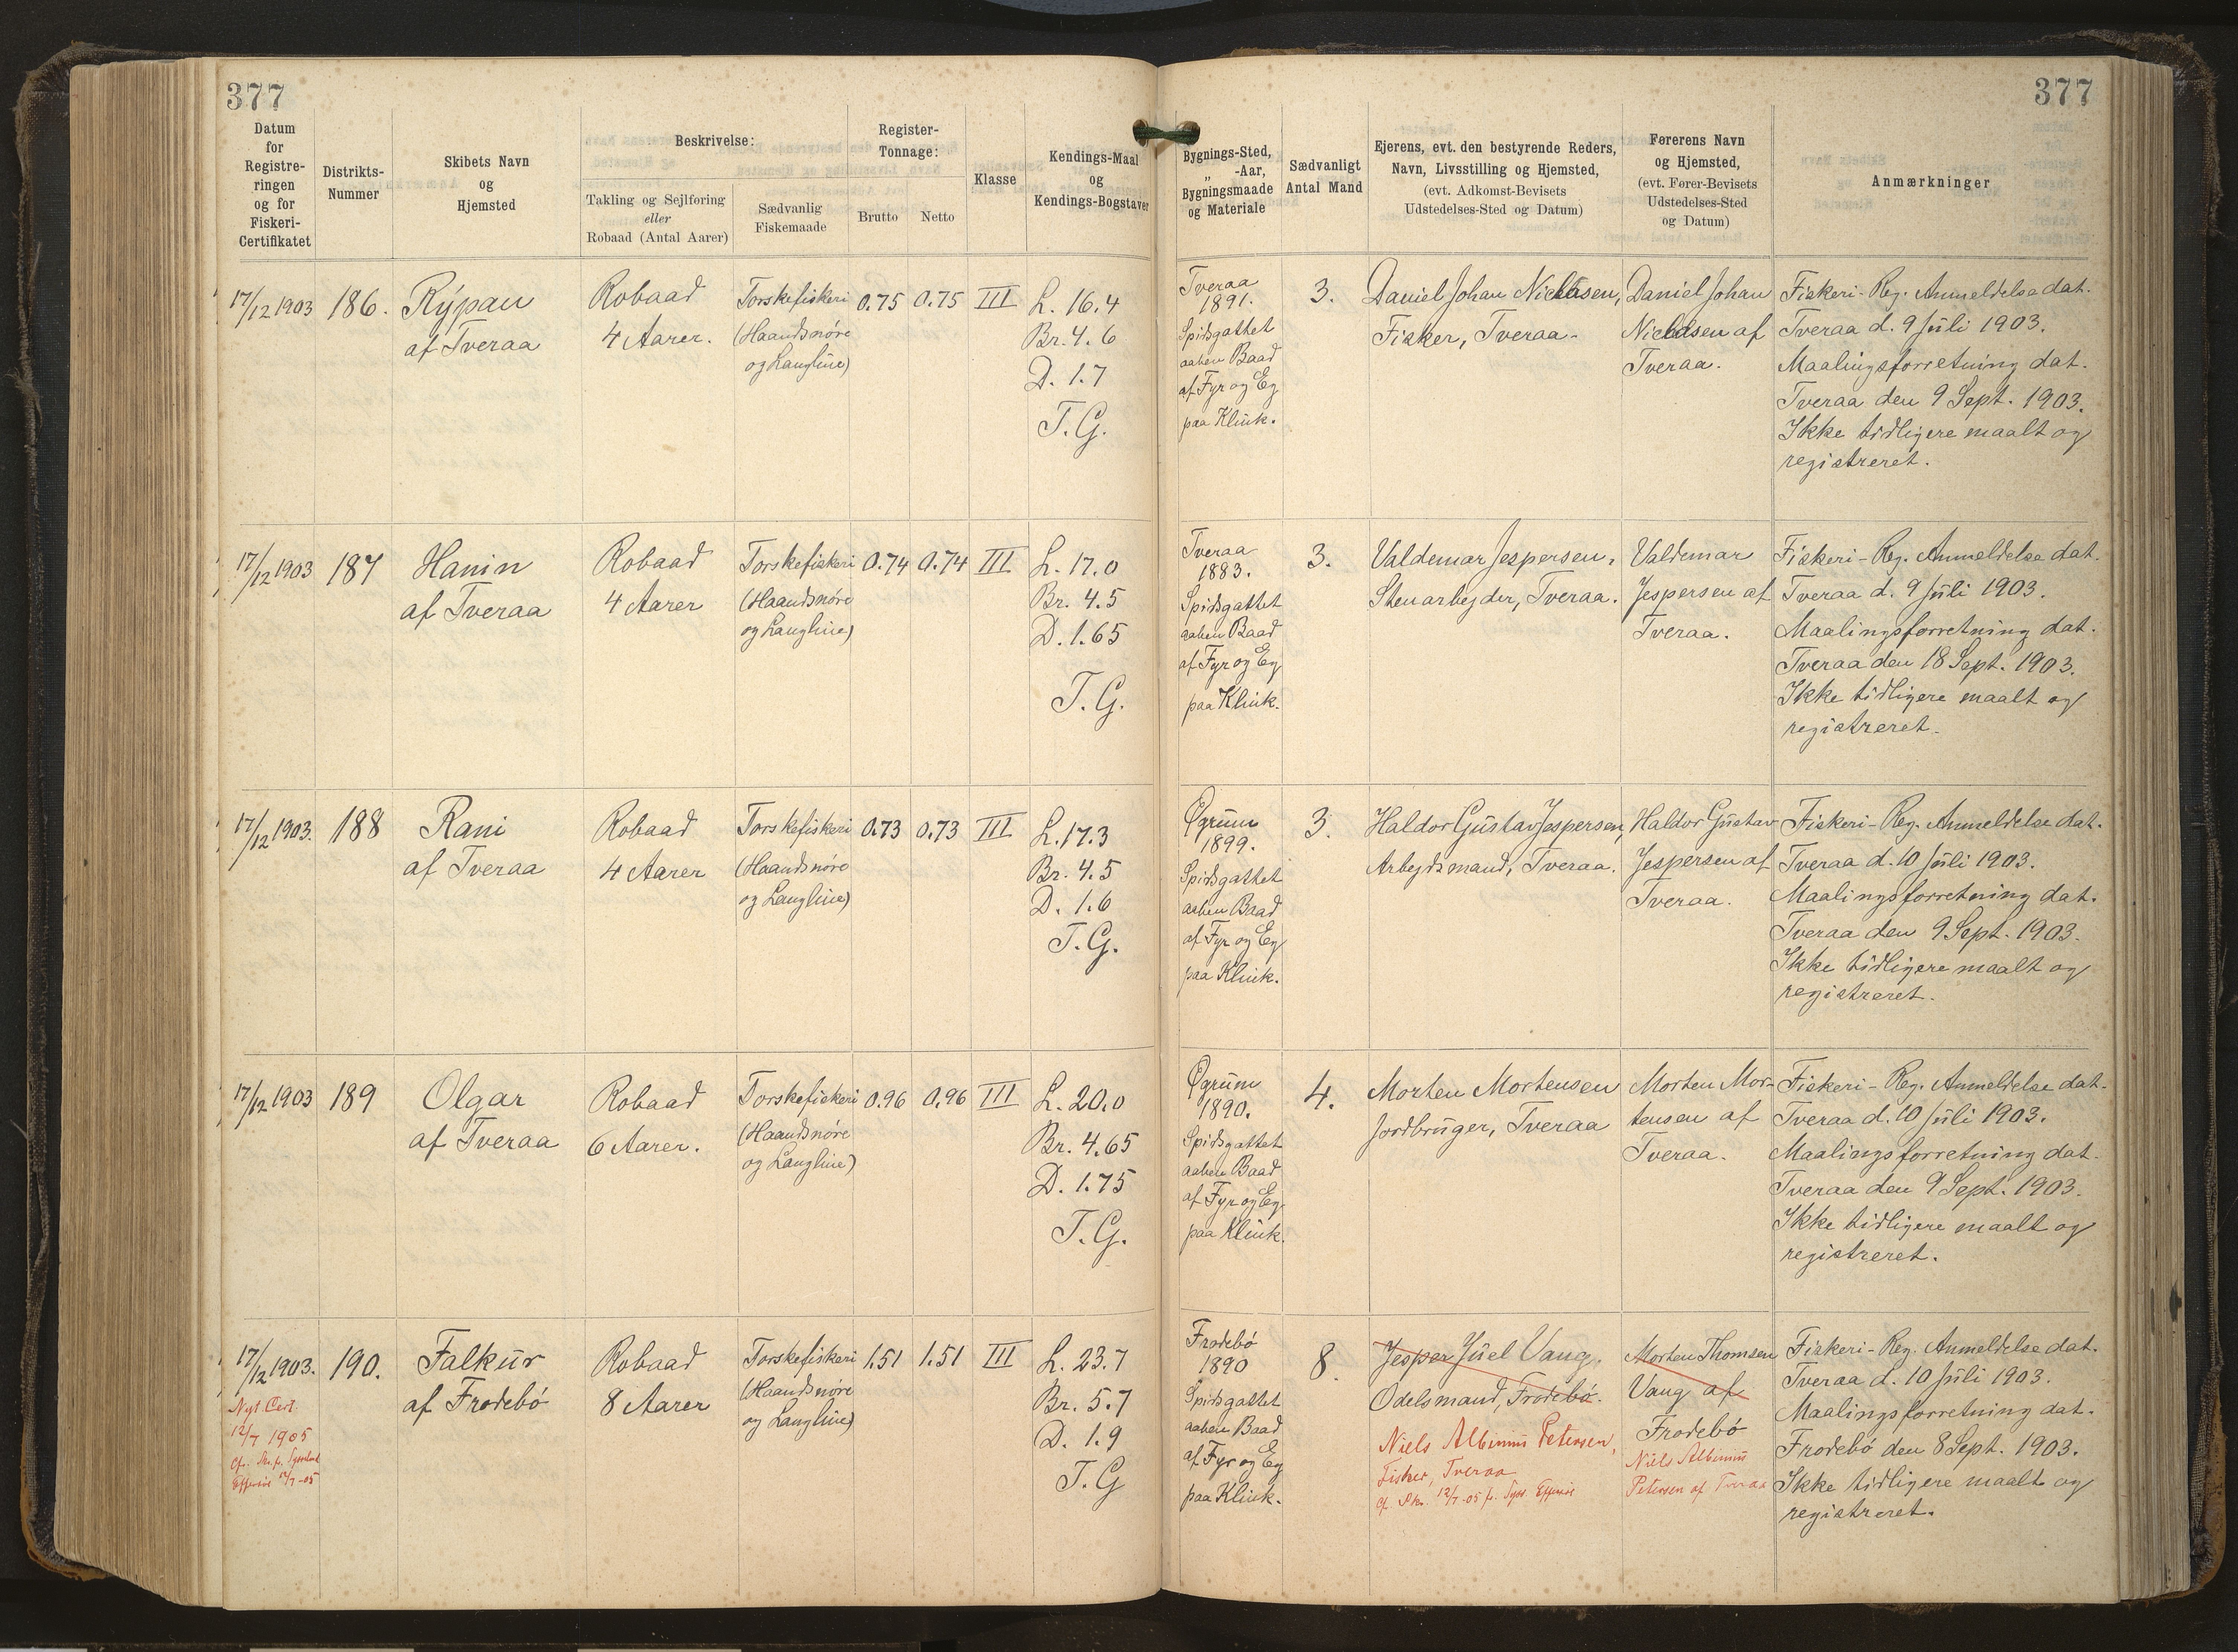 377
377
Datum
for
Registre-
ringen
og for
Fiskeri-
Certifikatet
Distrikts-
Nummer
Skibets Navn
og
Hjemsted
Beskrivelse:
Takling og Sejlføring
eller
Robaad (Antal Aarer)
Sædvanlig
Fiskemaade
Register-
Tonnage:
Brutto
Netto
Klasse
Kendings-Maal
og
Kendings-Bogstaver
Bygnings-Sted,
„ -Aar,
Bygningsmaade
og Materiale
Sædvanligt
Antal Mand
Ejerens, evt. den bestyrende Reders,
Navn, Livsstilling og Hjemsted,
(evt. Adkomst-Bevisets
Udstedelses-Sted og Datum)
Førerens Navn
og Hjemsted,
(evt. Fører-Bevisets
Udstedelses-Sted
og Datum)
Anmærkninger
17/12 1903
186.
Rýpan
af Tveraa
Robaad
4 Aarer.
Torskefiskeri
(Haandsnøre
og Langline)
0.75
0.75
III
L. 16.4
Br. 4.6
D. 1.7
T.G.
Tveraa
1891.
Spidsgattet
aaben Baad
af Fyr og Eg
paa Klink.
3.
Daniel Johan Niclasen,
Fisker, Tveraa.
Daniel Johan
Niclasen af
Tveraa.
Fiskeri-Reg. Anmeldelse dat.
Tveraa d. 9 Juli 1903.
Maalingsforretning dat.
Tveraa den 9 Sept. 1903.
Ikke tidligere maalt og
registreret.
17/12 1903
187
Hanin
af Tveraa
Robaad
4 Aarer
Torskefiskeri
(Haandsnøre
og Langline)
0.74
0.74
III
L. 17.0
Br. 4.5
D. 1.65
T.G.
Tveraa
1883.
Spidsgattet
aaben Baad
af Fyr og Eg
paa Klink.
3.
Valdemar Jespersen,
Stenarbejder, Tveraa.
Valdemar
Jespersen af
Tveraa.
Fiskeri-Reg. Anmeldelse dat.
Tveraa d. 9 Juli 1903.
Maalingsforretning dat.
Tveraa den 18 Sept. 1903.
Ikke tidligere maalt og
registreret.
17/12 1903.
188
Rani
af Tveraa
Robaad
4 Aarer
Torskefiskeri
(Haandsnøre
og Langline)
0.73
0.73
III
L. 17.3
Br. 4.5
D. 1.6
T.G.
Øgrum
1899.
Spidsgattet
aaben Baad
af Fyr og Eg
paa Klink.
3.
Haldor Gustav Jespersen,
Arbejdsmand, Tveraa.
Haldor Gustav
Jespersen af
Tveraa.
Fiskeri-Reg. Anmeldelse dat.
Tveraa d. 10 Juli 1903.
Maalingsforretning dat.
Tveraa den 9 Sept. 1903.
Ikke tidligere maalt og
registreret.
17/12 1903
189
Olgar
af Tveraa
Robaad
6 Aarer.
Torskefiskeri
(Haandsnøre
og Langline)
0.96
0.96
III
L. 20.0
Br. 4.65
D. 1.75
T.G.
Øgrum
1890.
Spidsgattet
aaben Baad
af Fyr og Eg
paa Klink.
4.
Morten Mortensen
Jordbruger, Tveraa
Morten Mor-
tensen af
Tveraa.
Fiskeri-Reg. Anmeldelse dat.
Tveraa d. 10 Juli 1903.
Maalingsforretning dat.
Tveraa den 9 Sept. 1903.
Ikke tidligere maalt og
registreret.
17/12 1903.
Nyt Cert.
12/7 1905
190.
Falkur
af Frodebø
Robaad
8 Aarer
Torskefiskeri
(Haandsnøre
og Langline)
1.51
1.51
III
L. 23.7
Br. 5.7
D. 1.9
T.G
Frodebø
1890
Spidsgattet
aaben Baad
af Fyr og Eg
paa Klink.
8.
Jesper Juel Vang,
Odelsmand, Frodebø.
Niels Albinus Petersen,
Fisker, Tveraa
Morten Thomsen
Vang af
Frodebø
Niels Albinus
Petersen af Tveraa
Fiskeri-Reg. Anmeldelse dat.
Tveraa d. 10 Juli 1903.
Maalingsforretning dat.
Frodebø den 8 Sept. 1903.
Ikke tidligere maalt og
registreret.